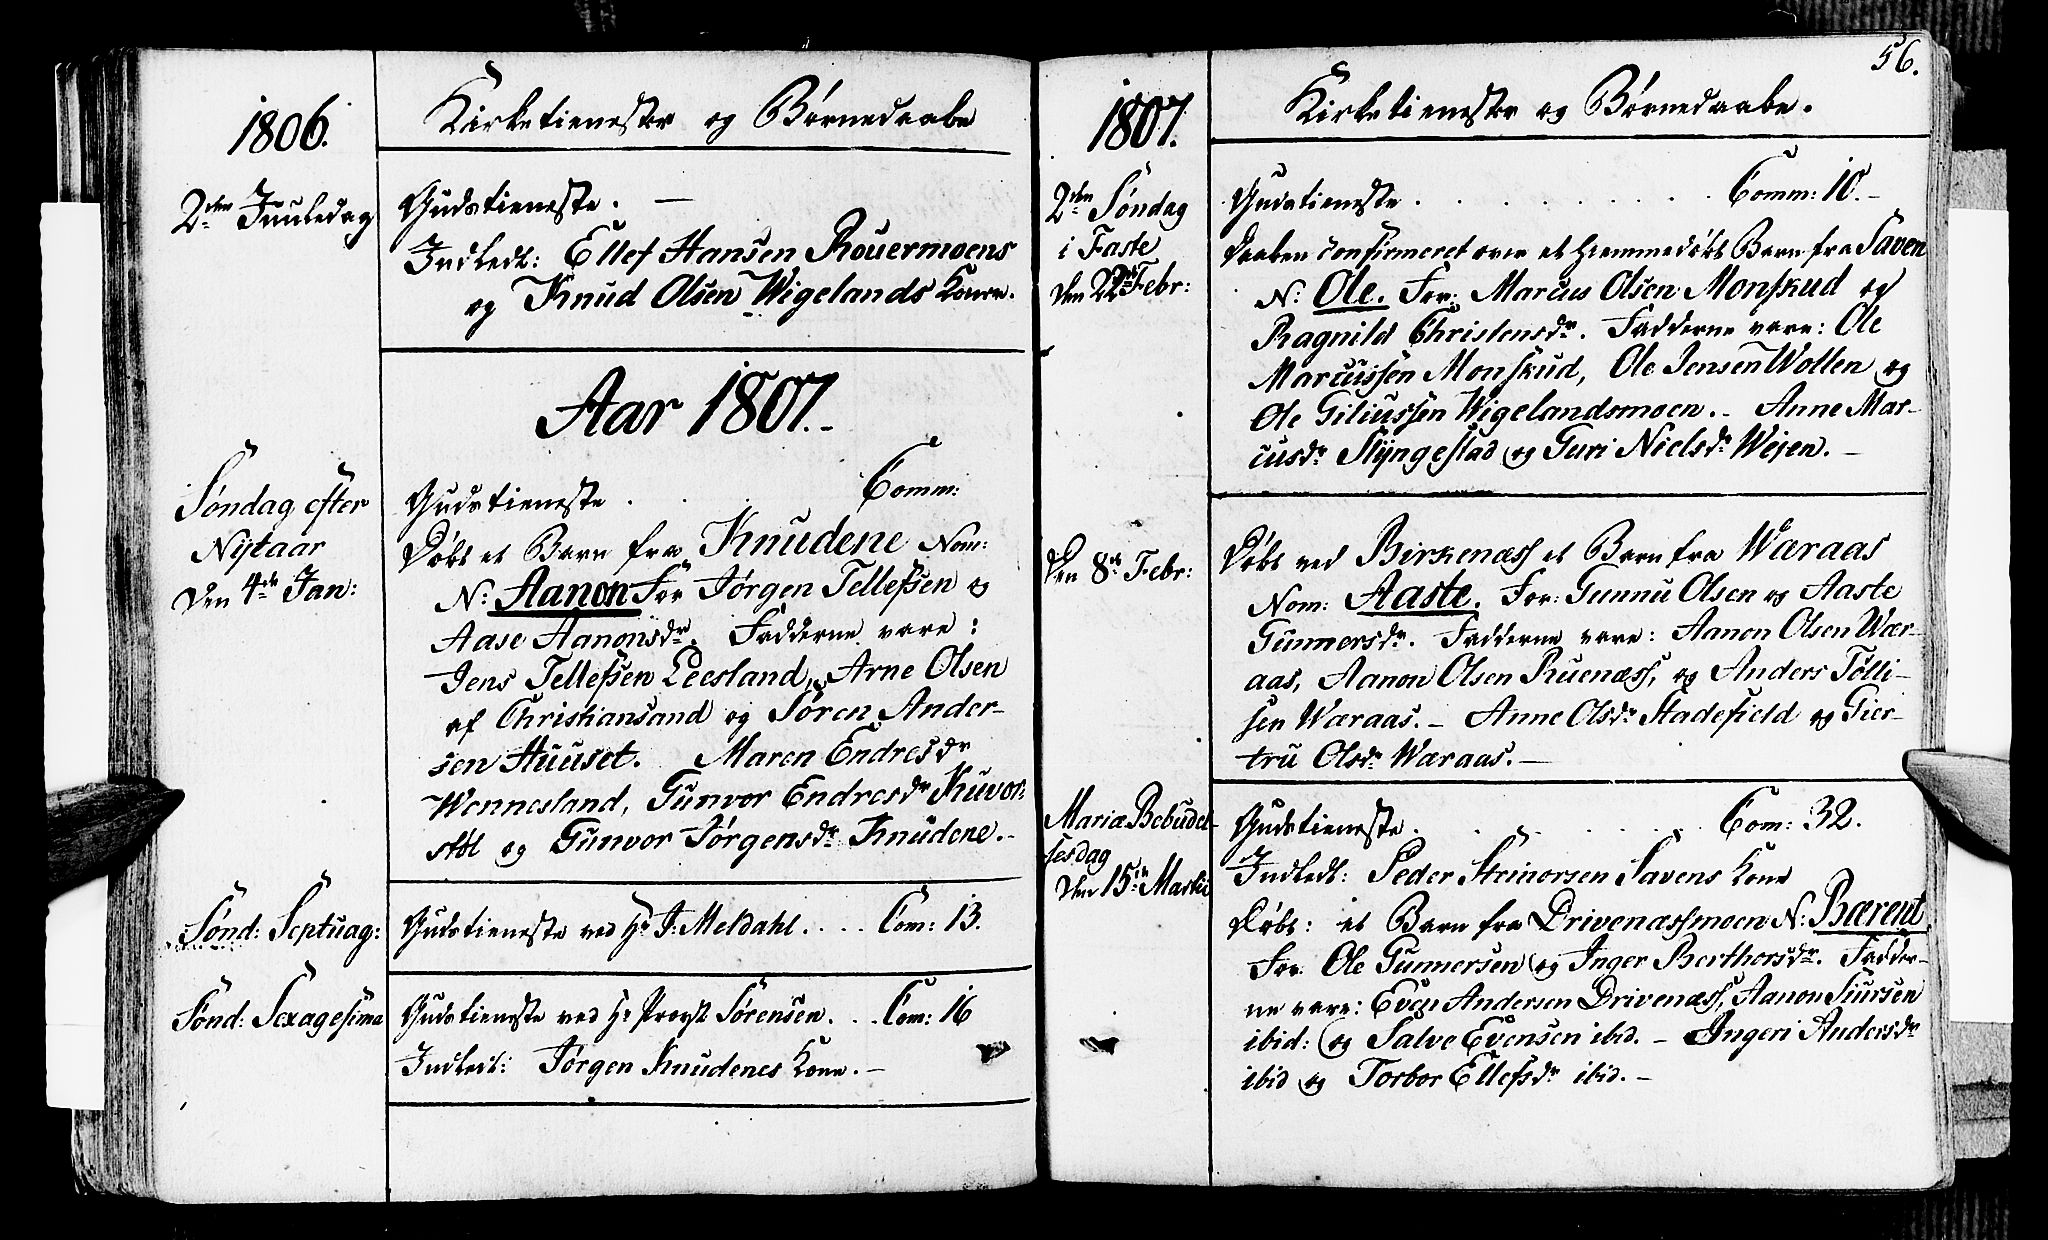 1806.
Kirketienester og Børnedaabe
2den Juuledag
Gudstieneste. —
Indledt: Ellef Hansen Rouermoens
og Knud Olsen Wigelands Koner.
Aar 1807.-
Søndag efter
Nytaar
Den 4de Jan:
Gudstieneste . . . Comm:
Døbt et Barn fra Knudene Nom:
N: Aanon For Jørgen Tellefsen og
Aase Aanonsdr. Fadderne vare:
Jens Tellefsen Leesland, Arne Olsen
af Christiansand og Søren Ander-
sen Huuset. Maren Endresdr
Wennesland, Gunvor Endresdr Kuvor-
støl og Gunvor Jørgensdr Knudene.-
Sønd: Septuag:
Gudstieneste ved Hr J: Meldahl. . . . Com: 13.
Sønd: Sexagesima
Gudstieneste ved Hr Provst Sørensen. . . Com: 16
Indledt: Jørgen Knudenes Kone.-
56.
1807.
Kirketienester og Børnedaabe.
2den Søndag
i Faste
Den 22de Febr:
Gudstieneste . . . . . . . . . Comm: 10.-
Daaben confirmeret over et hiemmedøbt Barn fra Saven
N: Ole. For: Marcus Olsen Monskud og
Ragnild Christensdr. Fadderne vare: Ole
Marcussen Monskud, Ole Jensen Wollen og
Ole Giliussen Wigelandsmoen.- Anne Mar-
cusdr Slyngestad og Guri Nielsdr Wejen.-
Den 8de Febr:
Døbt ved Birkenæss et Barn fra Wæraas
Nom: Aaste. For: Gunnu Olsen og Aaste
Gunnersdr. Fadderne vare: Aanon Olsen Wær-
aas, Aanon Olsen Ruenæss, og Anders Tølli-
sen Wæraas.- Anne Olsdr Stadefield og Gier-
tru Olsdr Wæraas.-
Mariæ Bebudel-
sesdag
Den 15de Martii
Gudstieneste. . . . . . . Com: 32.
Indledt: Peder Steinorsen Savens Kone
Døbt: et Barn fra Drivenæssmoen N: Bærent.
For: Ole Gunnersen og Inger Berthorsdr. Fadder-
ne vare: Even Andersen Drivenæss, Aanon Siursen
ibid: og Salve Evensen ibid.- Ingeri Andersdr
ibid og Torbor Ellefsdr ibid.-